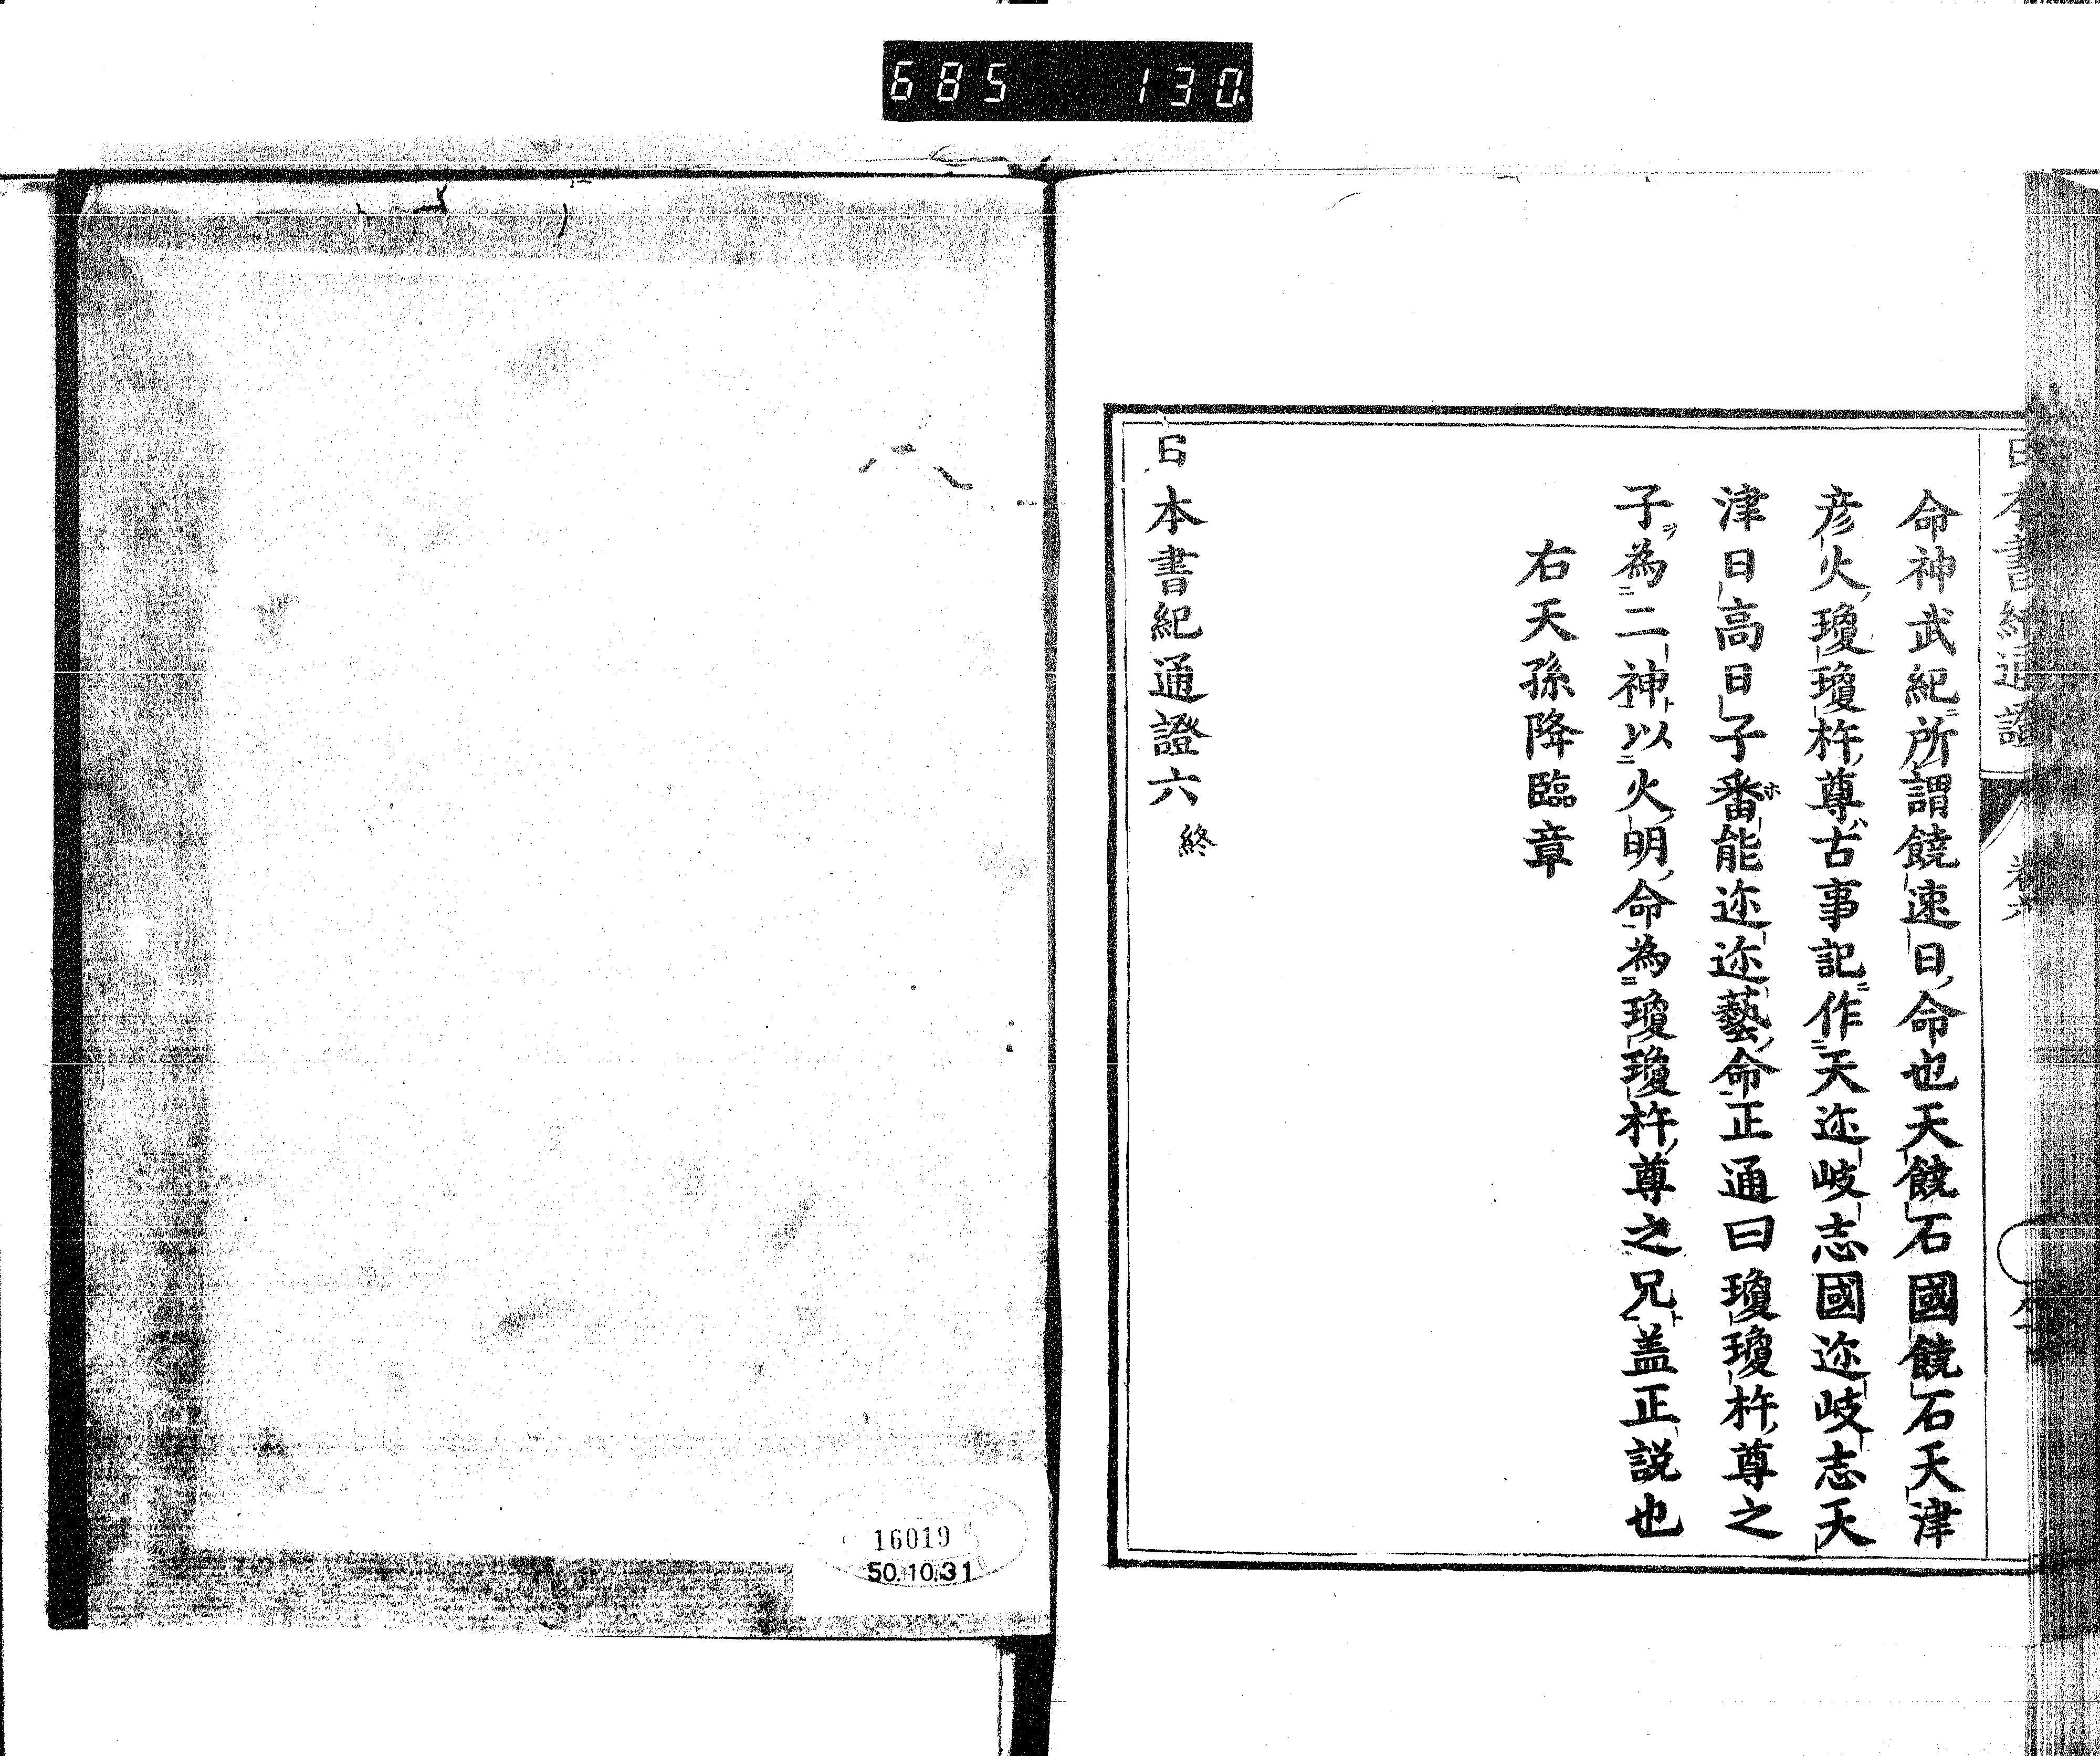 685 130
命神武紀所謂饒速日命也天饒石國饒石天津
彦火瓊瓊杵尊古事記作天迩岐志國迩岐志天
津日高日子番能迩迩藝命正通曰瓊瓊杵尊之
子為二神以火明命為瓊瓊杵尊之兄盖正説也
右天孫降臨章
日本書紀通證六 終
16019
50.10.31